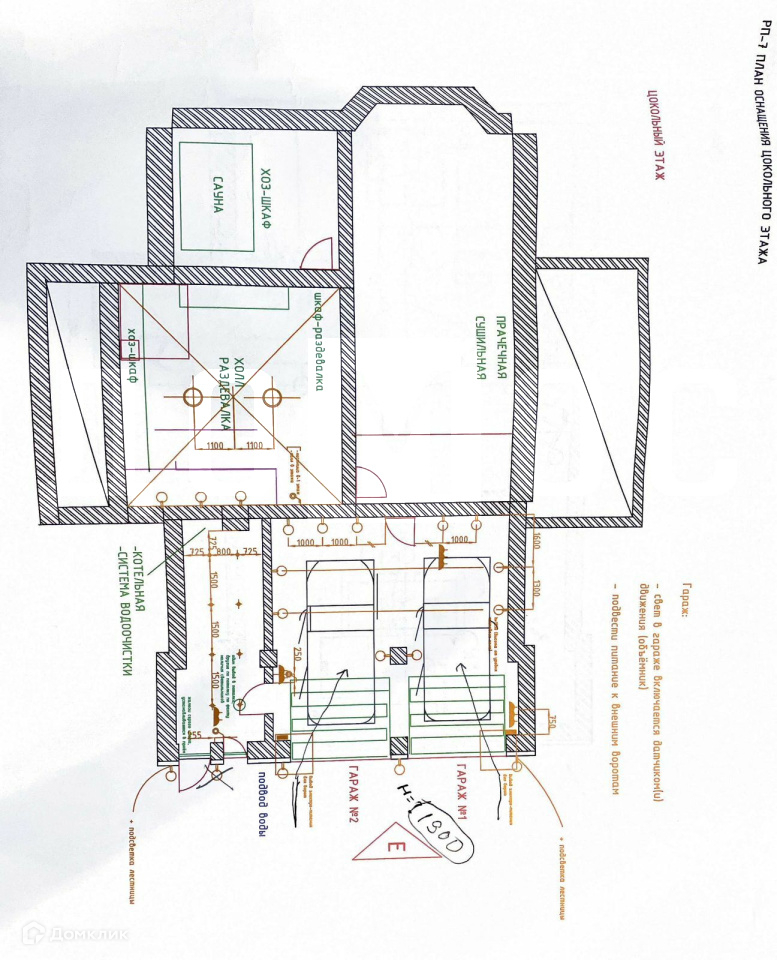 РП-7 ПЛАН ОСНАЩЕНИЯ ЦОКОЛЬНОГО ЭТАЖА
ЦОКОЛЬНЫЙ ЭТАЖ
Гараж:
- свет в гараже включается датчиком(и)
движения (объёмник)
- подвести питание к внешним воротам
ПРАЧЕЧНАЯ
СУШИЛЬНАЯ
ХОЗ-ШКАФ
САУНА
шкаф-раздевалка
ХОЛЛ
РАЗДЕВАЛКА
хоз-шкаф
1100
1100
1600
1300
1000
1000
1000
725
725
800
725
1500
1500
1500
250
750
255
-КОТЕЛЬНАЯ
-СИСТЕМА ВОДООЧИСТКИ
ГАРАЖ №1
ГАРАЖ №2
подвод воды
H=1900
Е
+ подсветка лестницы
+ подсветка лестницы
Домклик